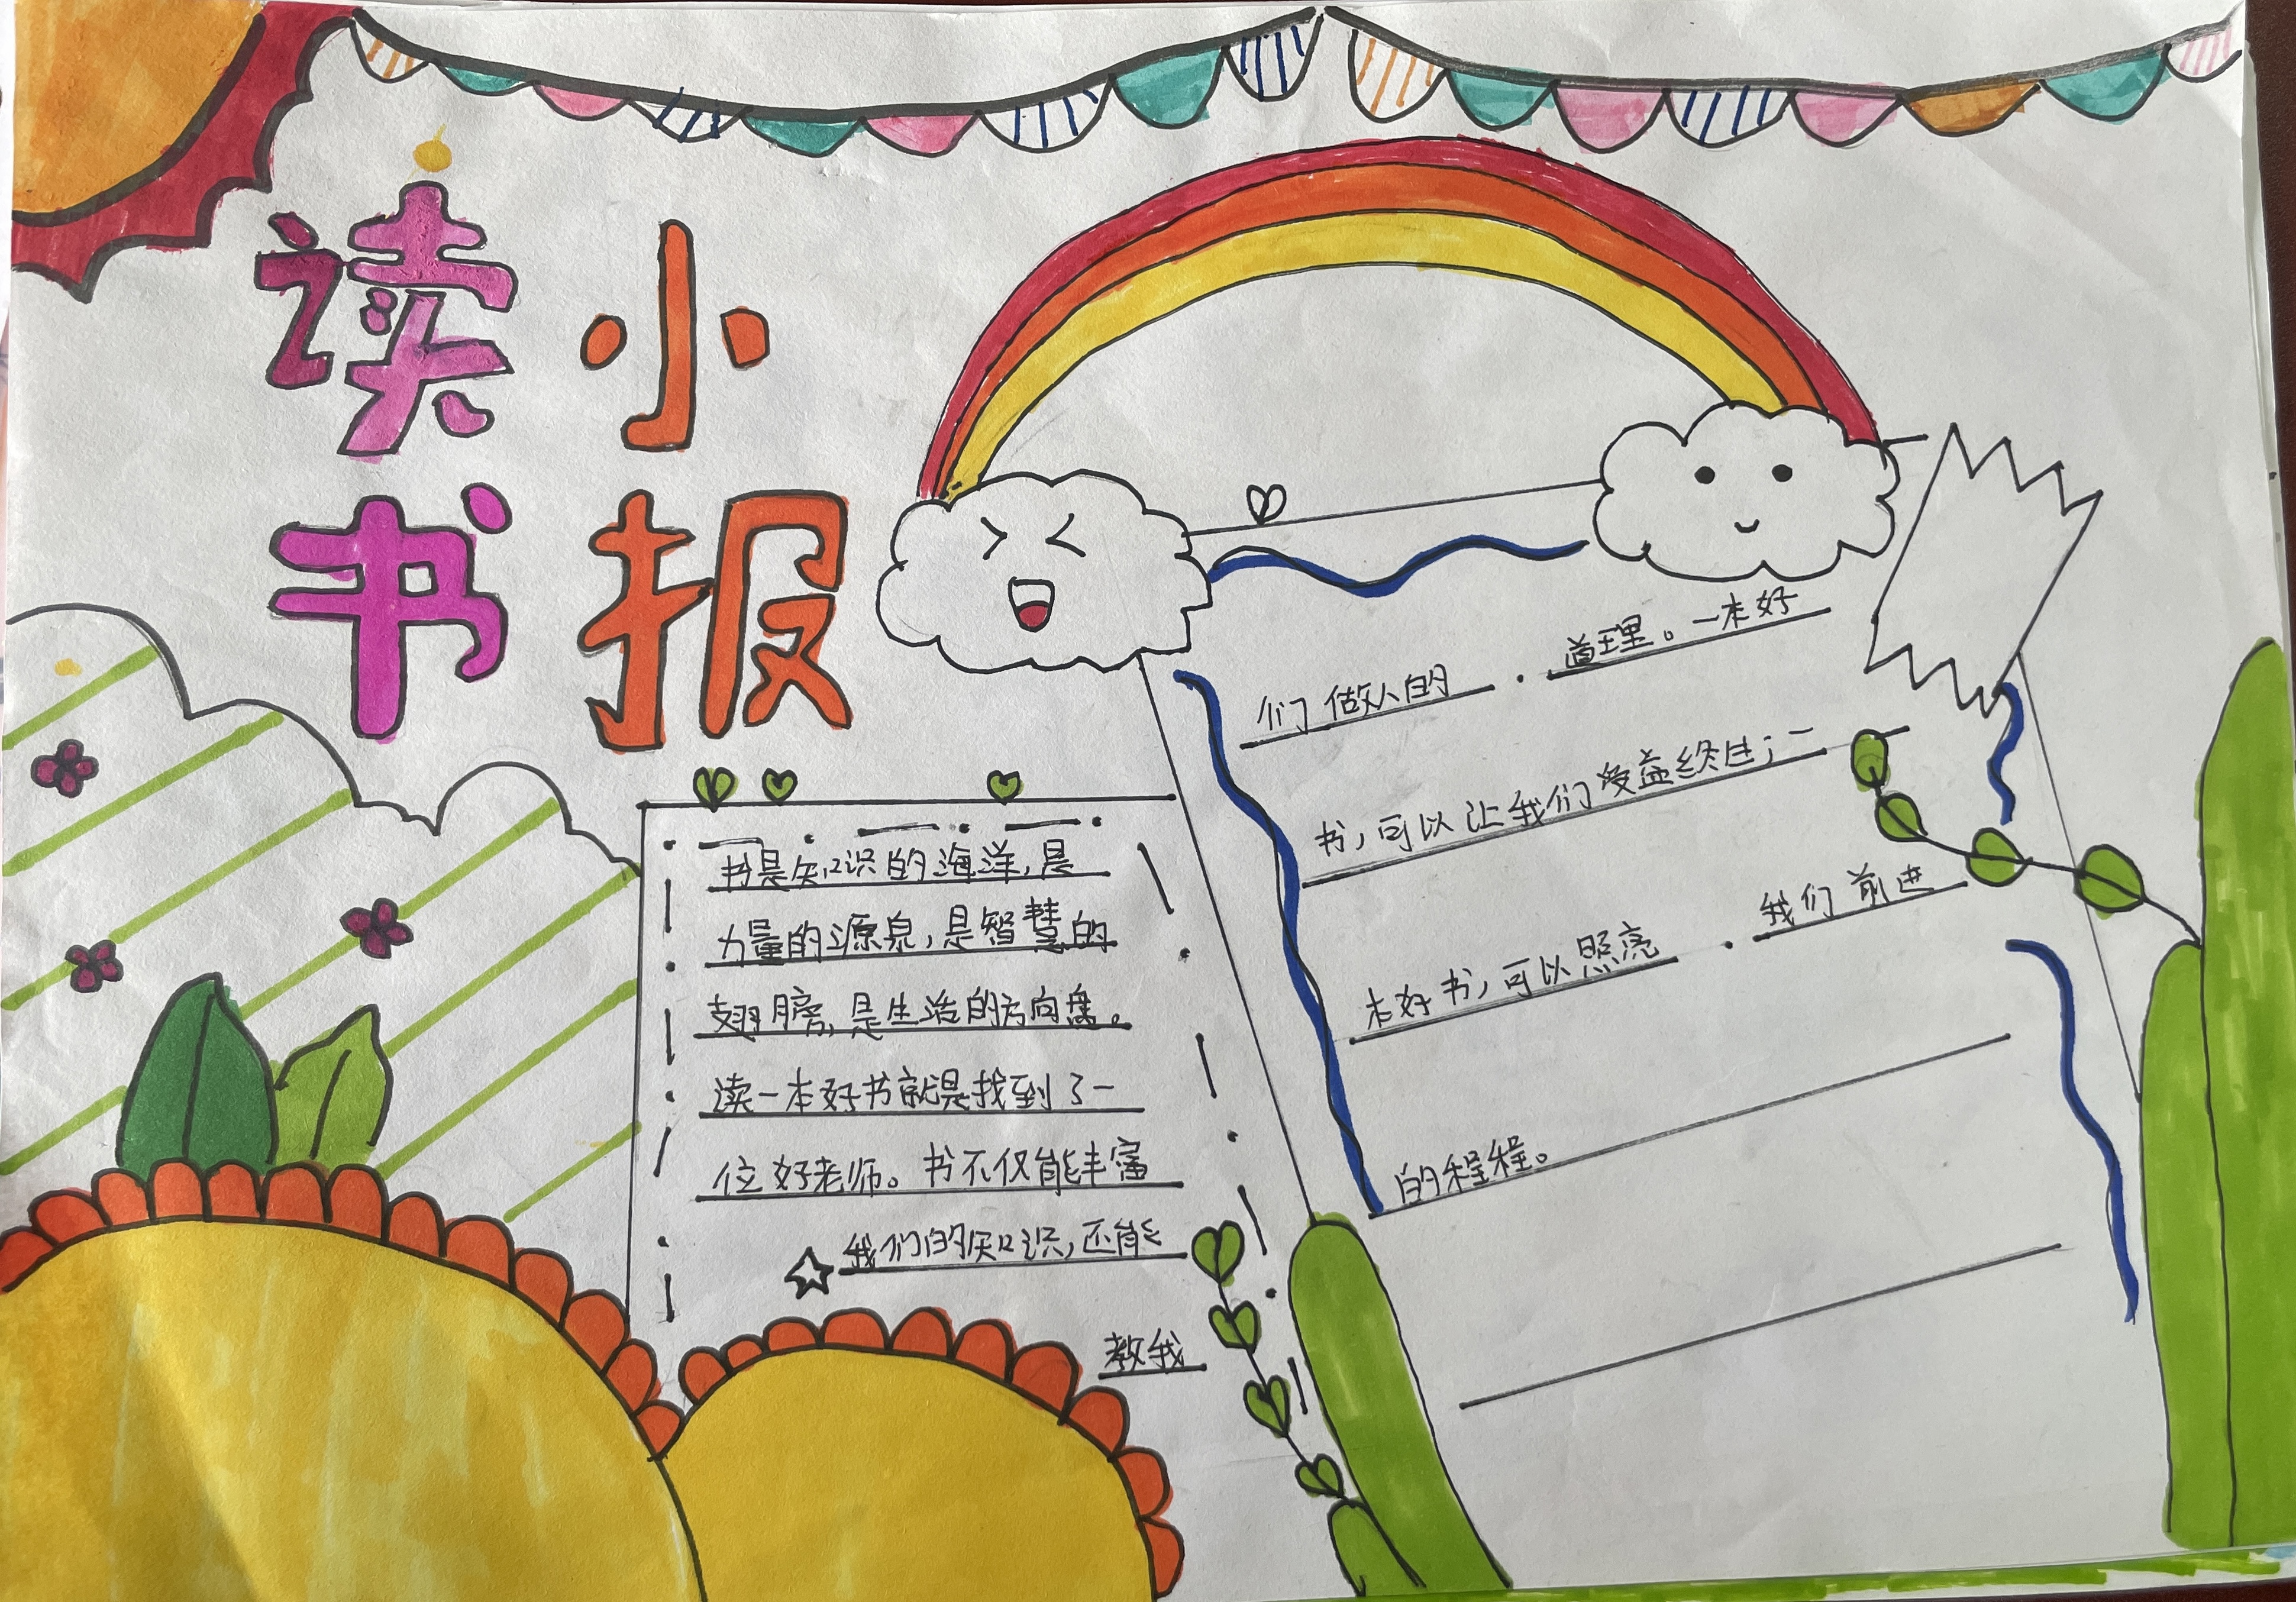 读书
小报
书是知识的海洋,是
力量的源泉,是智慧的
翅膀,是生活的方向盘。
读一本好书就是找到了一
位好老师。书不仅能丰富
我们的知识,还能
教我
们做人的 道理。一本好
书,可以让我们受益终生;一
本好书,可以照亮 我们前进
的程程。